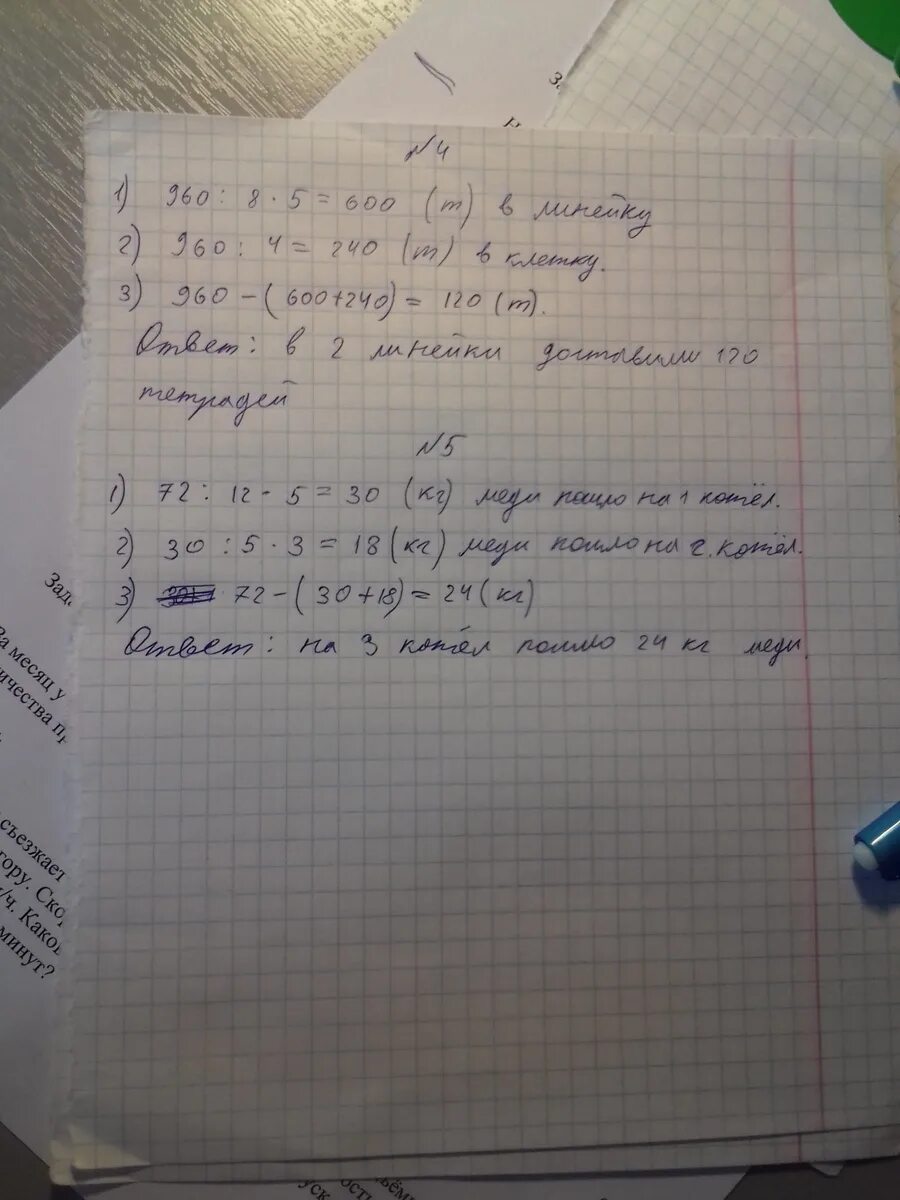 №4
1) 960 : 8 · 5 = 600 (т) в линейку
2) 960 : 4 = 240 (т) в клетку.
3) 960 - (600+240) = 120 (т).
Ответ: в 2 линейки доставили 120
тетрадей
№5
1) 72 : 12 · 5 = 30 (кг) меди пошло на 1 котёл.
2) 30 : 5 · 3 = 18 (кг) меди пошло на 2. котёл.
3) 72 - (30+18) = 24 (кг)
Ответ: на 3 котёл пошло 24 кг меди.
За месяц у
съезжает
гору. Ско
/ч. Каков
минут?